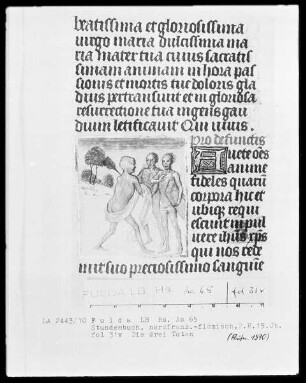 beatissima et gloriosissima
uirgo maria dulcissima ma
ria mater tua cuius sacratis
simam animam in hora pas
sionis et mortis tue doloris gla
dius pertransiuit et in gloriosa
resurrectione tua ingens gau
dium letificauit Qui uiuis.
Pro defunctis
Auete oēs
anime
fideles quarū
corpora hic et
ubique requi
escunt in pul
uere ihūs xp̄s
qui nos rede
mit suo preciosissimo sanguine
FULDA LB Hs Aa 65 fol 31v
LA 2443/70 Fulda LB Hs. Aa 65
Stundenbuch, nordfranz.-flämisch, 2.H.15.Jh.
fol 31v Die drei Toten